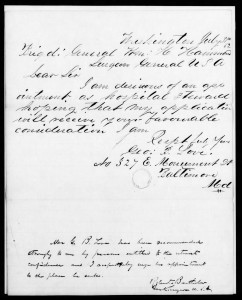 Washington July 29
Brigd: General Wm: H Hammond
Surgeon General U S A
Dear Sir
I am desirous of an app
ointment as hospital Steward
hoping that my application
will receive your favourable
consideration I am
Respt yours
Geo: B. Love
No 327 E. Monument St
Baltimore
Md
Mr. G. B. Love has been recommended
strongly to me by persons entitled to the utmost
confidence and I respectfully urge his appointment
to the place he seeks.
Roberts Bartholow